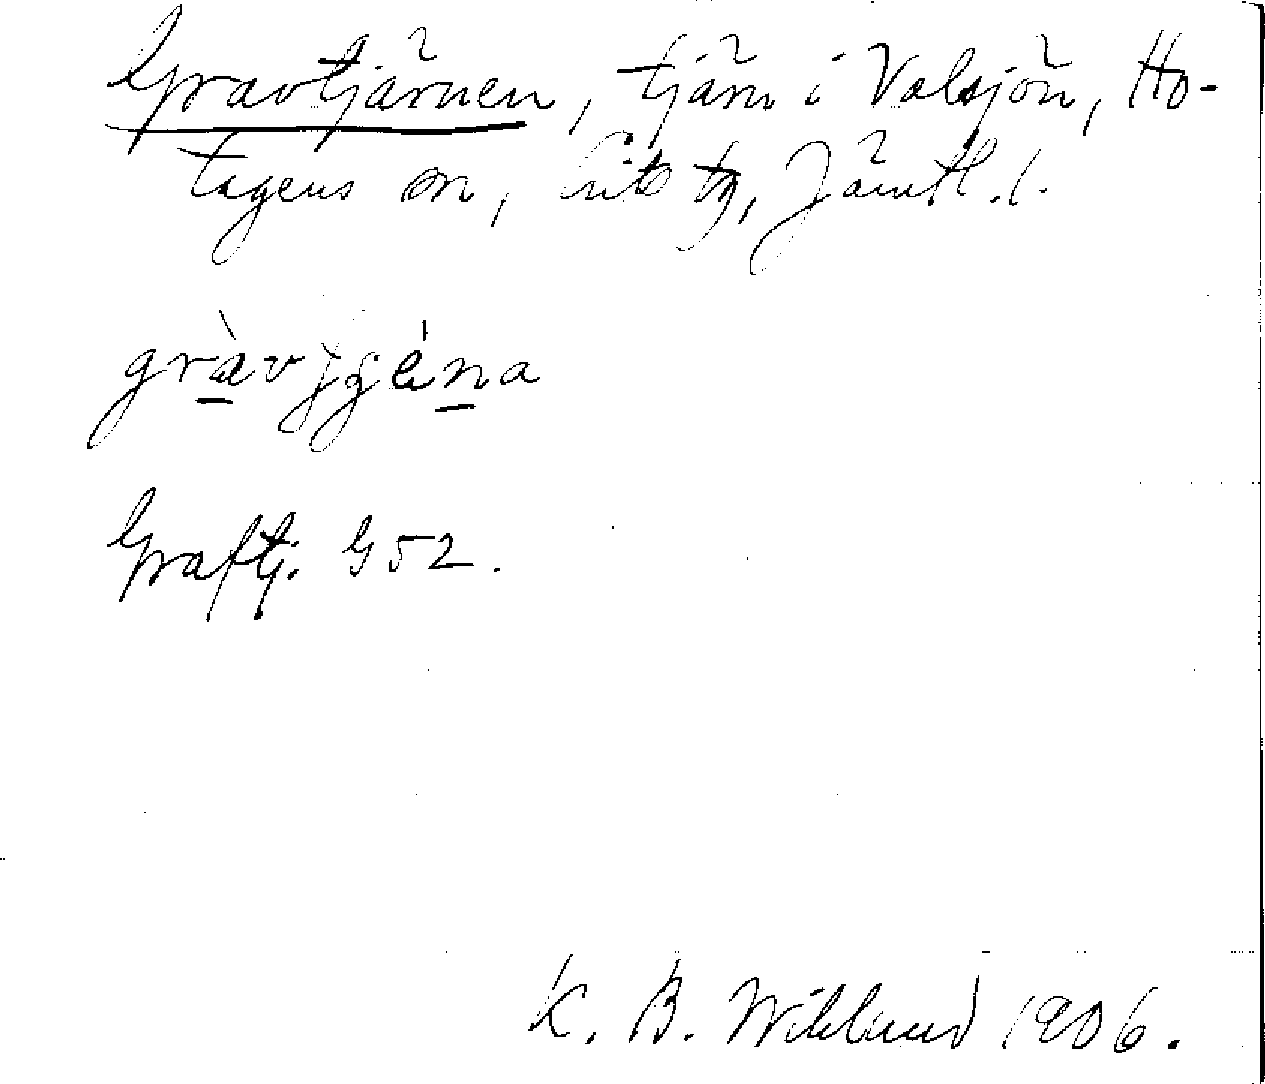 Gravtjärnen, tjärn i Valsjön, Ho-
tagens sn, Lits tg, Jämtl. l.
Graftj. G 52.
K. B. Wiklund 1906.